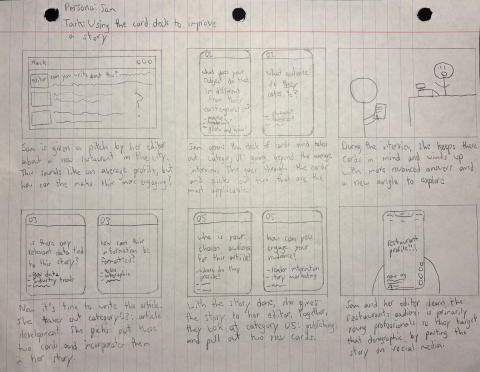 Persona: Sam
Task: Using the card deck to improve
a story
Slack
editor can you write about this?
Sam is given a pitch by her editor
about a new restaurant in the city.
This sounds like an average profile, but
how can she make this more engaging?
02
what does your
subject do that
is different
from their
competitors?
02
What audience
do they
cater to?
Sam opens the deck of cards and takes
out category 02: going beyond the average
interview. She goes through the cards
and pulls out two that are the
most applicable.
During the interview, she keeps these
cards in mind and winds up
with more nuanced answers and
a new angle to explore
03
is there any
relevant data tied
to this story?
- industry trends
03
how can this
information be
formatted?
- infographic
Now it's time to write the article.
She takes out category 03: article
development. She picks out these
two cards and incorporates them
in her story.
05
who is your
chosen audience
for this article?
- where do they
05
how can you
engage your
audience?
With the story done, she gives
the story to her editor. Together,
they look at category 05: publishing
and pull out two new cards.
restaurant
profile!!!
Sam and her editor learn the
restaurant's audience is primarily
young professionals so they target
that demographic by posting this
story on social media.